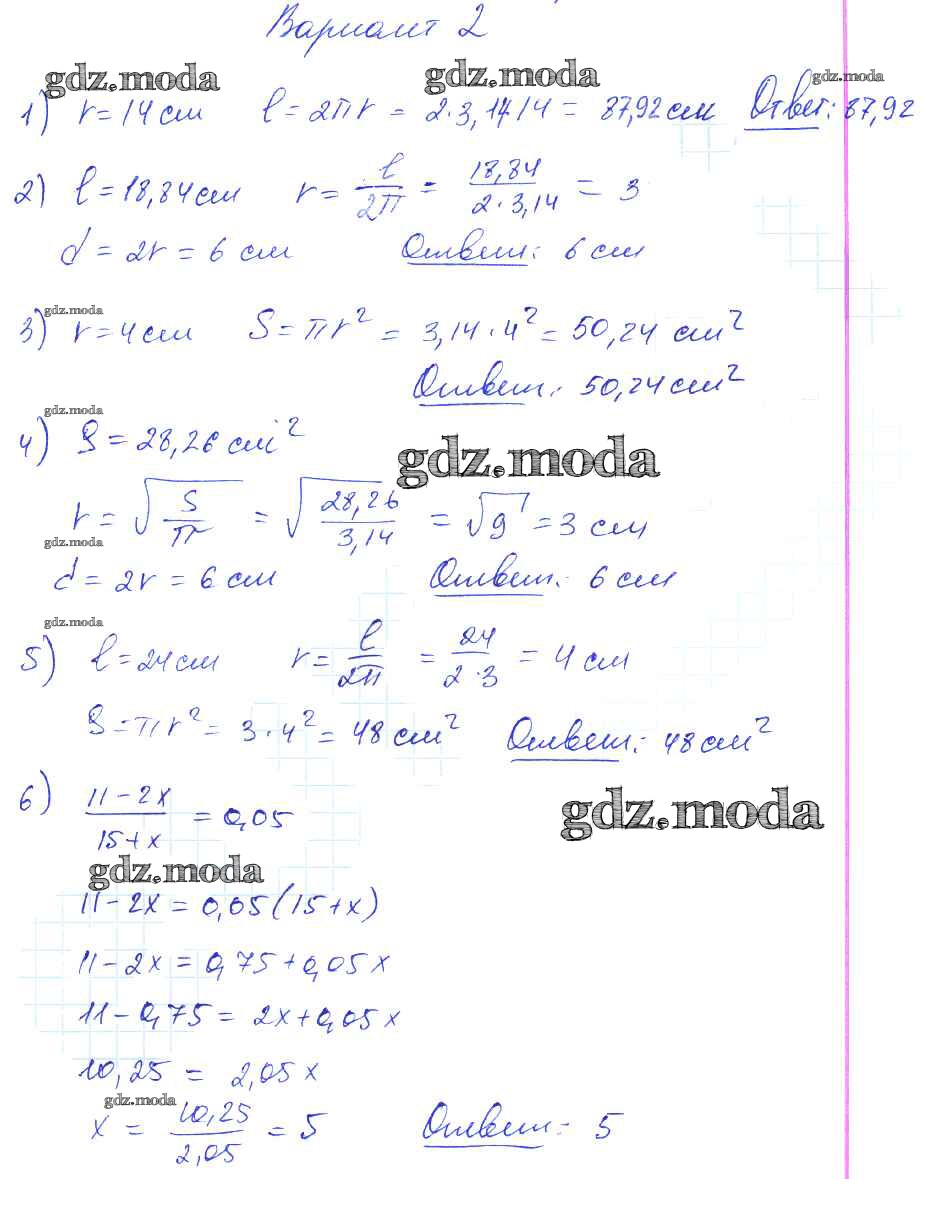 Вариант 2
gdz.moda gdz.moda gdz.moda
1) r = 14 см l = 2πr = 2·3,14·14 = 87,92 см Ответ: 87,92
2) l = 18,84 см r = l/2π = 18,84/2·3,14 = 3
d = 2r = 6 см Ответ: 6 см
gdz.moda
3) r = 4 см S = πr² = 3,14·4² = 50,24 см²
Ответ: 50,24 см²
gdz.moda
4) S = 28,26 см²
gdz.moda
r = √(S/π) = √(28,26/3,14) = √9 = 3 см
gdz.moda
d = 2r = 6 см Ответ: 6 см
gdz.moda
5) l = 24 см r = l/2π = 24/2·3 = 4 см
S = πr² = 3·4² = 48 см² Ответ: 48 см²
6) 11-2x/15+x = 0,05
gdz.moda
gdz.moda
11-2x = 0,05(15+x)
11-2x = 0,75+0,05x
11-0,75 = 2x+0,05x
10,25 = 2,05x
gdz.moda
x = 10,25/2,05 = 5 Ответ: 5